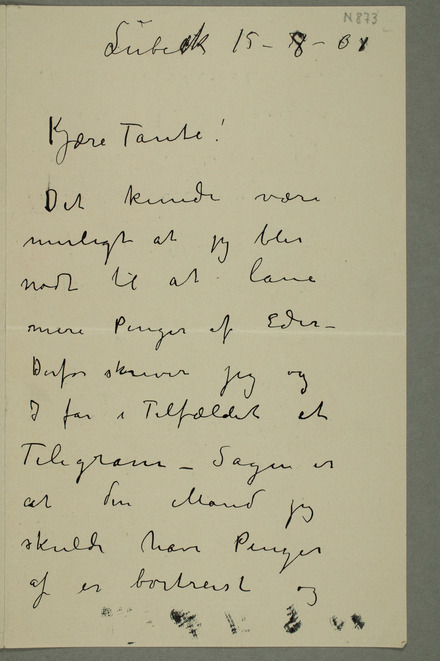 N 873
Lübeck 15 - 8 - 01
Kjære Tante!
Det kunde være
muligt at jeg blev
nødt til at lane
mere Penger af Eder -
Derfor skriver jeg og
I far i Tilfældet et
Telegram - Sagen er
at den Mand jeg
skulde have Penger
af er bortreist og